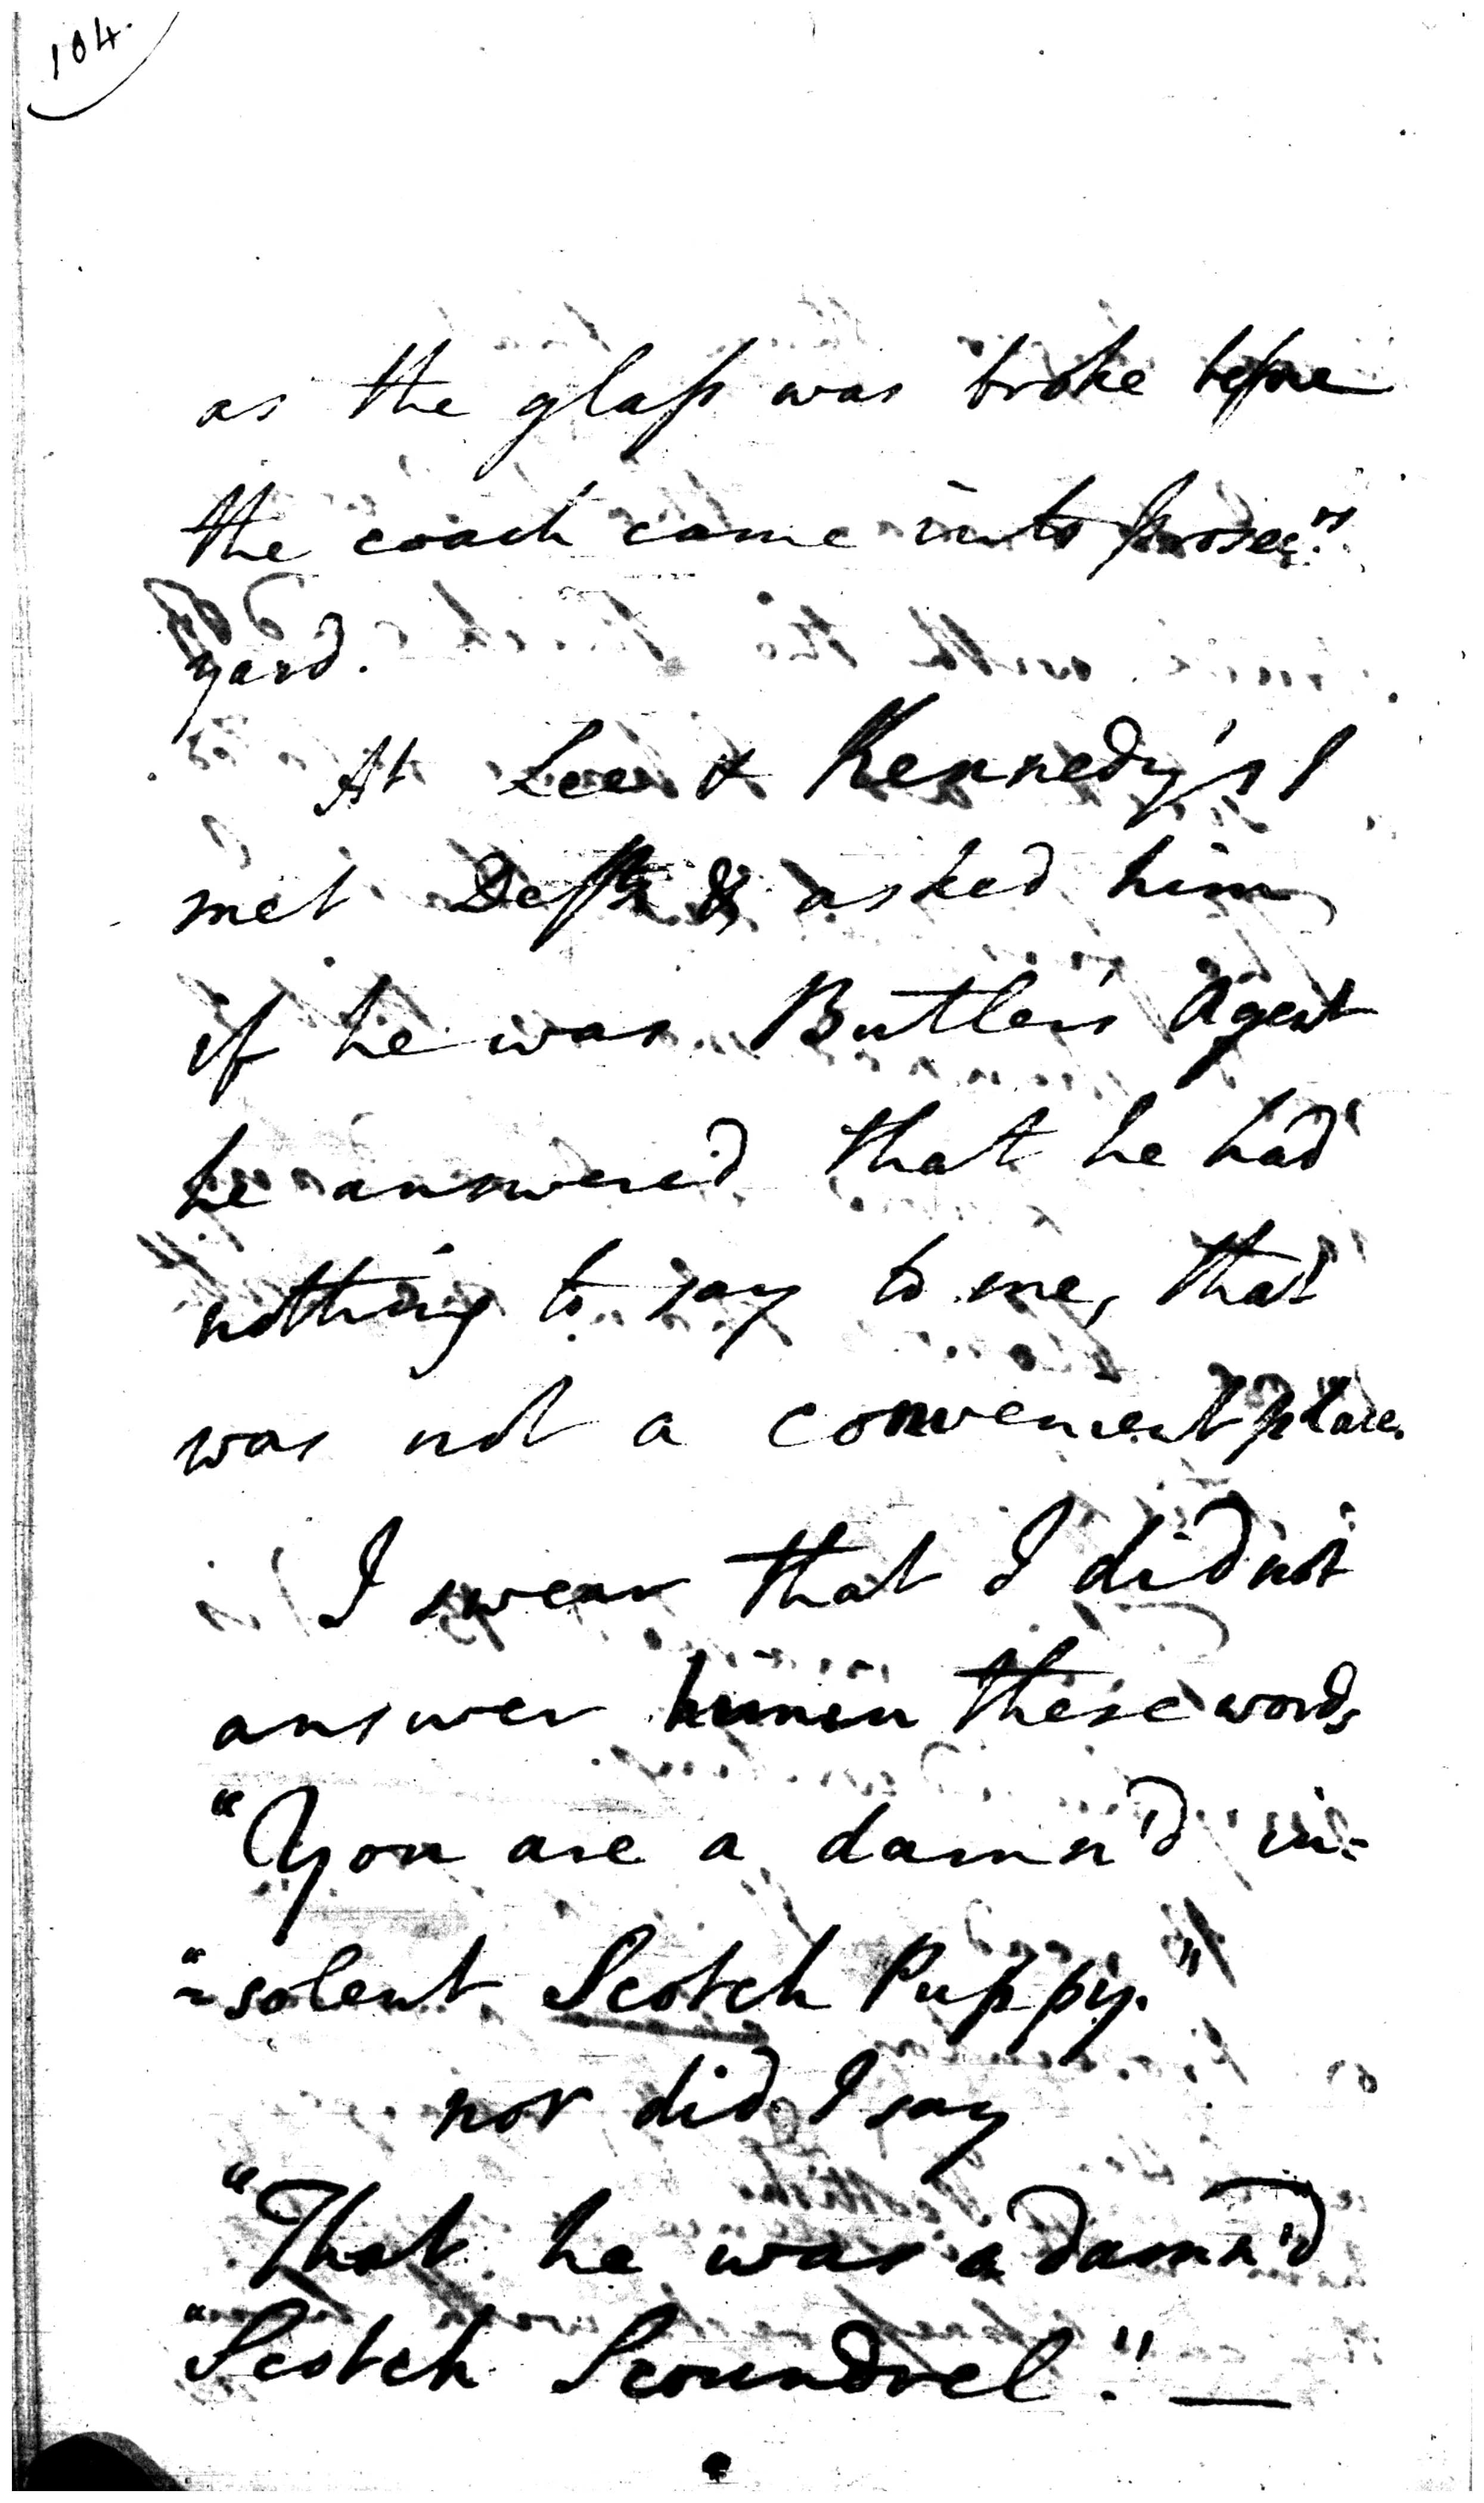 104.
as the glass was broke before
the coach came into Prosecrs
yard.
At Lee & Kennedy's I
met Deft & asked him
if he was Butler's Agent
he answered that he had
nothing to say to me, that
was not a convenient place.
I swear that I did not
answer him in these words
"You are a damn'd in-
"-solent Scotch Puppy."
nor did I say
"That he was a damn'd
"Scotch Scoundrel." —